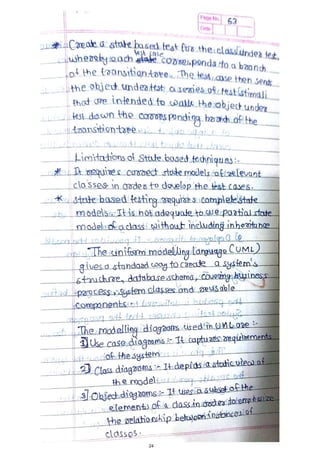 Page No. 63
Date
* Create a state based test for the class under test,
whereby each test case corresponds to a branch
of the transition tree. The test case then sends
the object under test a series of test stimuli
that are intended to walk the object under
test down the corresponding branch of the
transition tree
Limitations of State based techniques :-
* It requires correct state models of relevent
classes in order to develop the test cases.
* State based testing requires complete state
models. It is not adequate to use partial state
model of a class without including inheritance
The uniform modelling language (UML)
gives a standard way to create a system's
structure, database schema, covering business
process, system classes and reusable
components.
The modelling diagrams used in UML are :-
1] Use case diagrams :- It captures requirements
of the system
2] Class diagrams :- It depicts a static view of
the model
3] Object diagrams :- It uses a subset of the
elements of a class in order to emphasize
the relationship between instances of
classes.
24